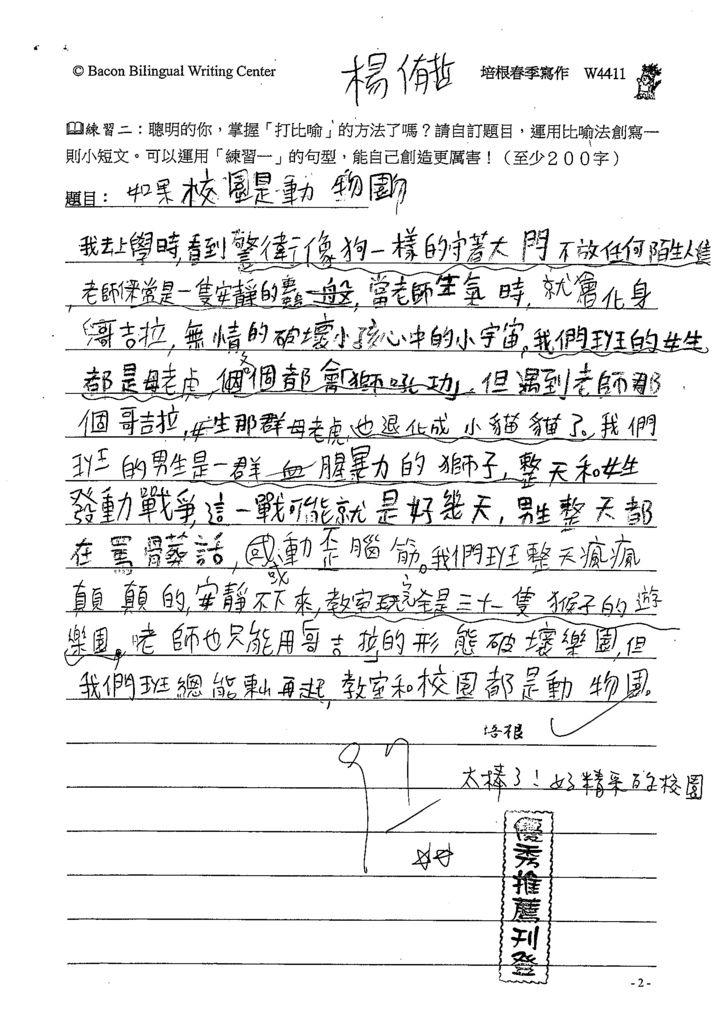 © Bacon Bilingual Writing Center
楊侑哲
培根春季寫作 W4411
練習二：聰明的你，掌握「打比喻」的方法了嗎？請自訂題目，運用比喻法創寫一
則小短文。可以運用「練習一」的句型，能自己創造更厲害！（至少２００字）
題目： 如果校園是動物園
我去上學時,看到警衛像狗一樣的守著大門不放任何陌生人進
,老師像是一隻安靜的蟲一般,當老師生氣時,就會化身
哥吉拉,無情的破壞小孩心中的小宇宙,我們班的女生
都是母老虎,個個都會「獅吼功」,但遇到老師那
個哥吉拉,女生那群母老虎,也退化成小貓貓了。我們
班的男生是一群血腥暴力的獅子,整天和女生
發動戰爭,這一戰可能就是好幾天,男生整天都
在罵髒話,或動歪腦筋。我們班整天瘋瘋
顛顛的,安靜不下來,教室完全是三十一隻猴子的遊
樂園。老師也只能用哥吉拉的形態破壞樂園,但
我們班總能東山再起,教室和校園都是動物園。
培根
97
太棒了！好精采的校園
優秀推薦刊登
-2-